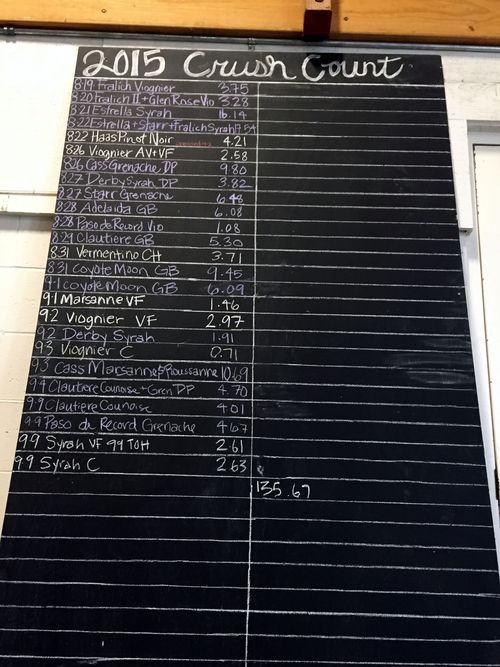 2015 Crush Count
819 Fralich Viognier 3.75
820 Fralich II + Glen Rose Vio 3.28
821 Estrella Syrah 16.14
822 Estrella + Starr + Fralich Syrah 17.54
822 Haas Pinot Noir 4.21
826 Viognier AV+VF 2.58
826 Cass Grenache DP 9.80
827 Derby Syrah DP 3.82
827 Starr Grenache 6.48
828 Adelaida GB 6.08
828 Paso de Record Vio 1.08
829 Clautiere GB 5.30
831 Vermentino CH 3.71
831 Coyote Moon GB 9.45
91 Coyote Moon GB 6.09
91 Marsanne VF 1.46
92 Viognier VF 2.97
92 Derby Syrah 1.91
93 Viognier C 0.71
93 Cass Marsanne & Roussanne 10.69
94 Clautiere Counoise + Gren DP 4.70
99 Clautiere Counoise 4.01
99 Paso de Record Grenache 4.67
99 Syrah VF 99 TOH 2.61
99 Syrah C 2.63
135.67